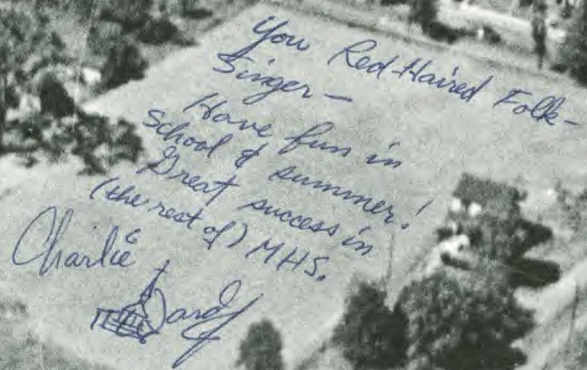 You Red-Haired Folk-
Singer—
Have fun in
School & summer!
Great success in
(the rest of) MHS.
Charlie